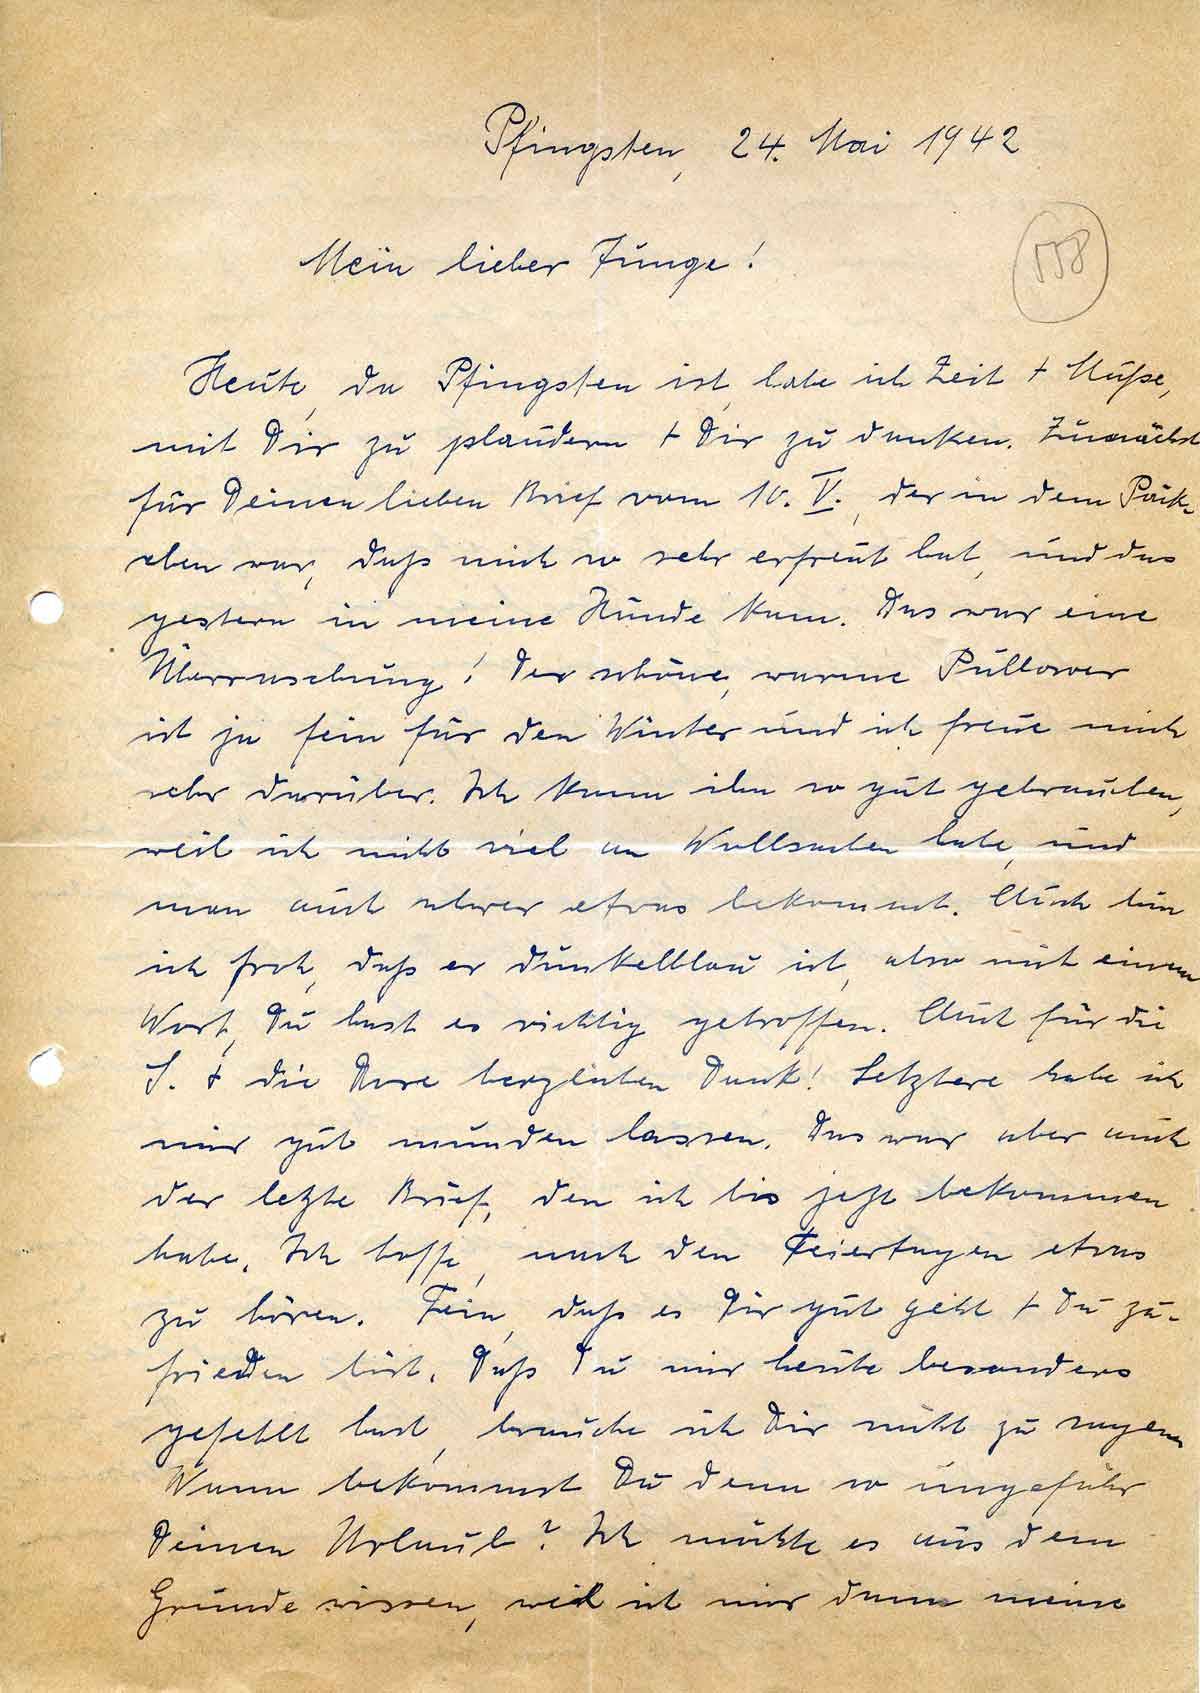 Pfingsten, 24. Mai 1942
558
Mein lieber Junge!
Heute, da Pfingsten ist, habe ich Zeit + Muße,
mit Dir zu plaudern + Dir zu danken. Zunächst
für Deinen lieben Brief vom 10. V., der in dem Päck-
chen war, daß mich so sehr erfreut hat, und das
gestern in meine Hände kam. Das war eine
Überraschung! Der schöne, warme Pullover
ist ja fein für den Winter und ich freue mich
sehr darüber. Ich kann ihn so gut gebrauchen,
weil ich nicht viel an Wollsachen habe, und
man auch schwer etwas bekommt. Auch bin
ich froh, daß er dunkelblau ist, also mit einem
Wort, Du hast es richtig getroffen. Auch für die
S. + die herzlichen Dank! Letztere habe ich
mir gut munden lassen. Das war aber auch
der letzte Brief, den ich bis jetzt bekommen
habe. Ich hoffe, nach den Feiertagen etwas
zu hören. Fein, daß es Dir gut geht + Du zu-
frieden bist. Daß Du mir heute besonders
gefehlt hast, brauche ich Dir nicht zu sagen.
Wann bekommst Du denn so ungefähr
Deinen Urlaub? Ich möchte es aus dem
Grunde wissen, weil ich mir dann meine